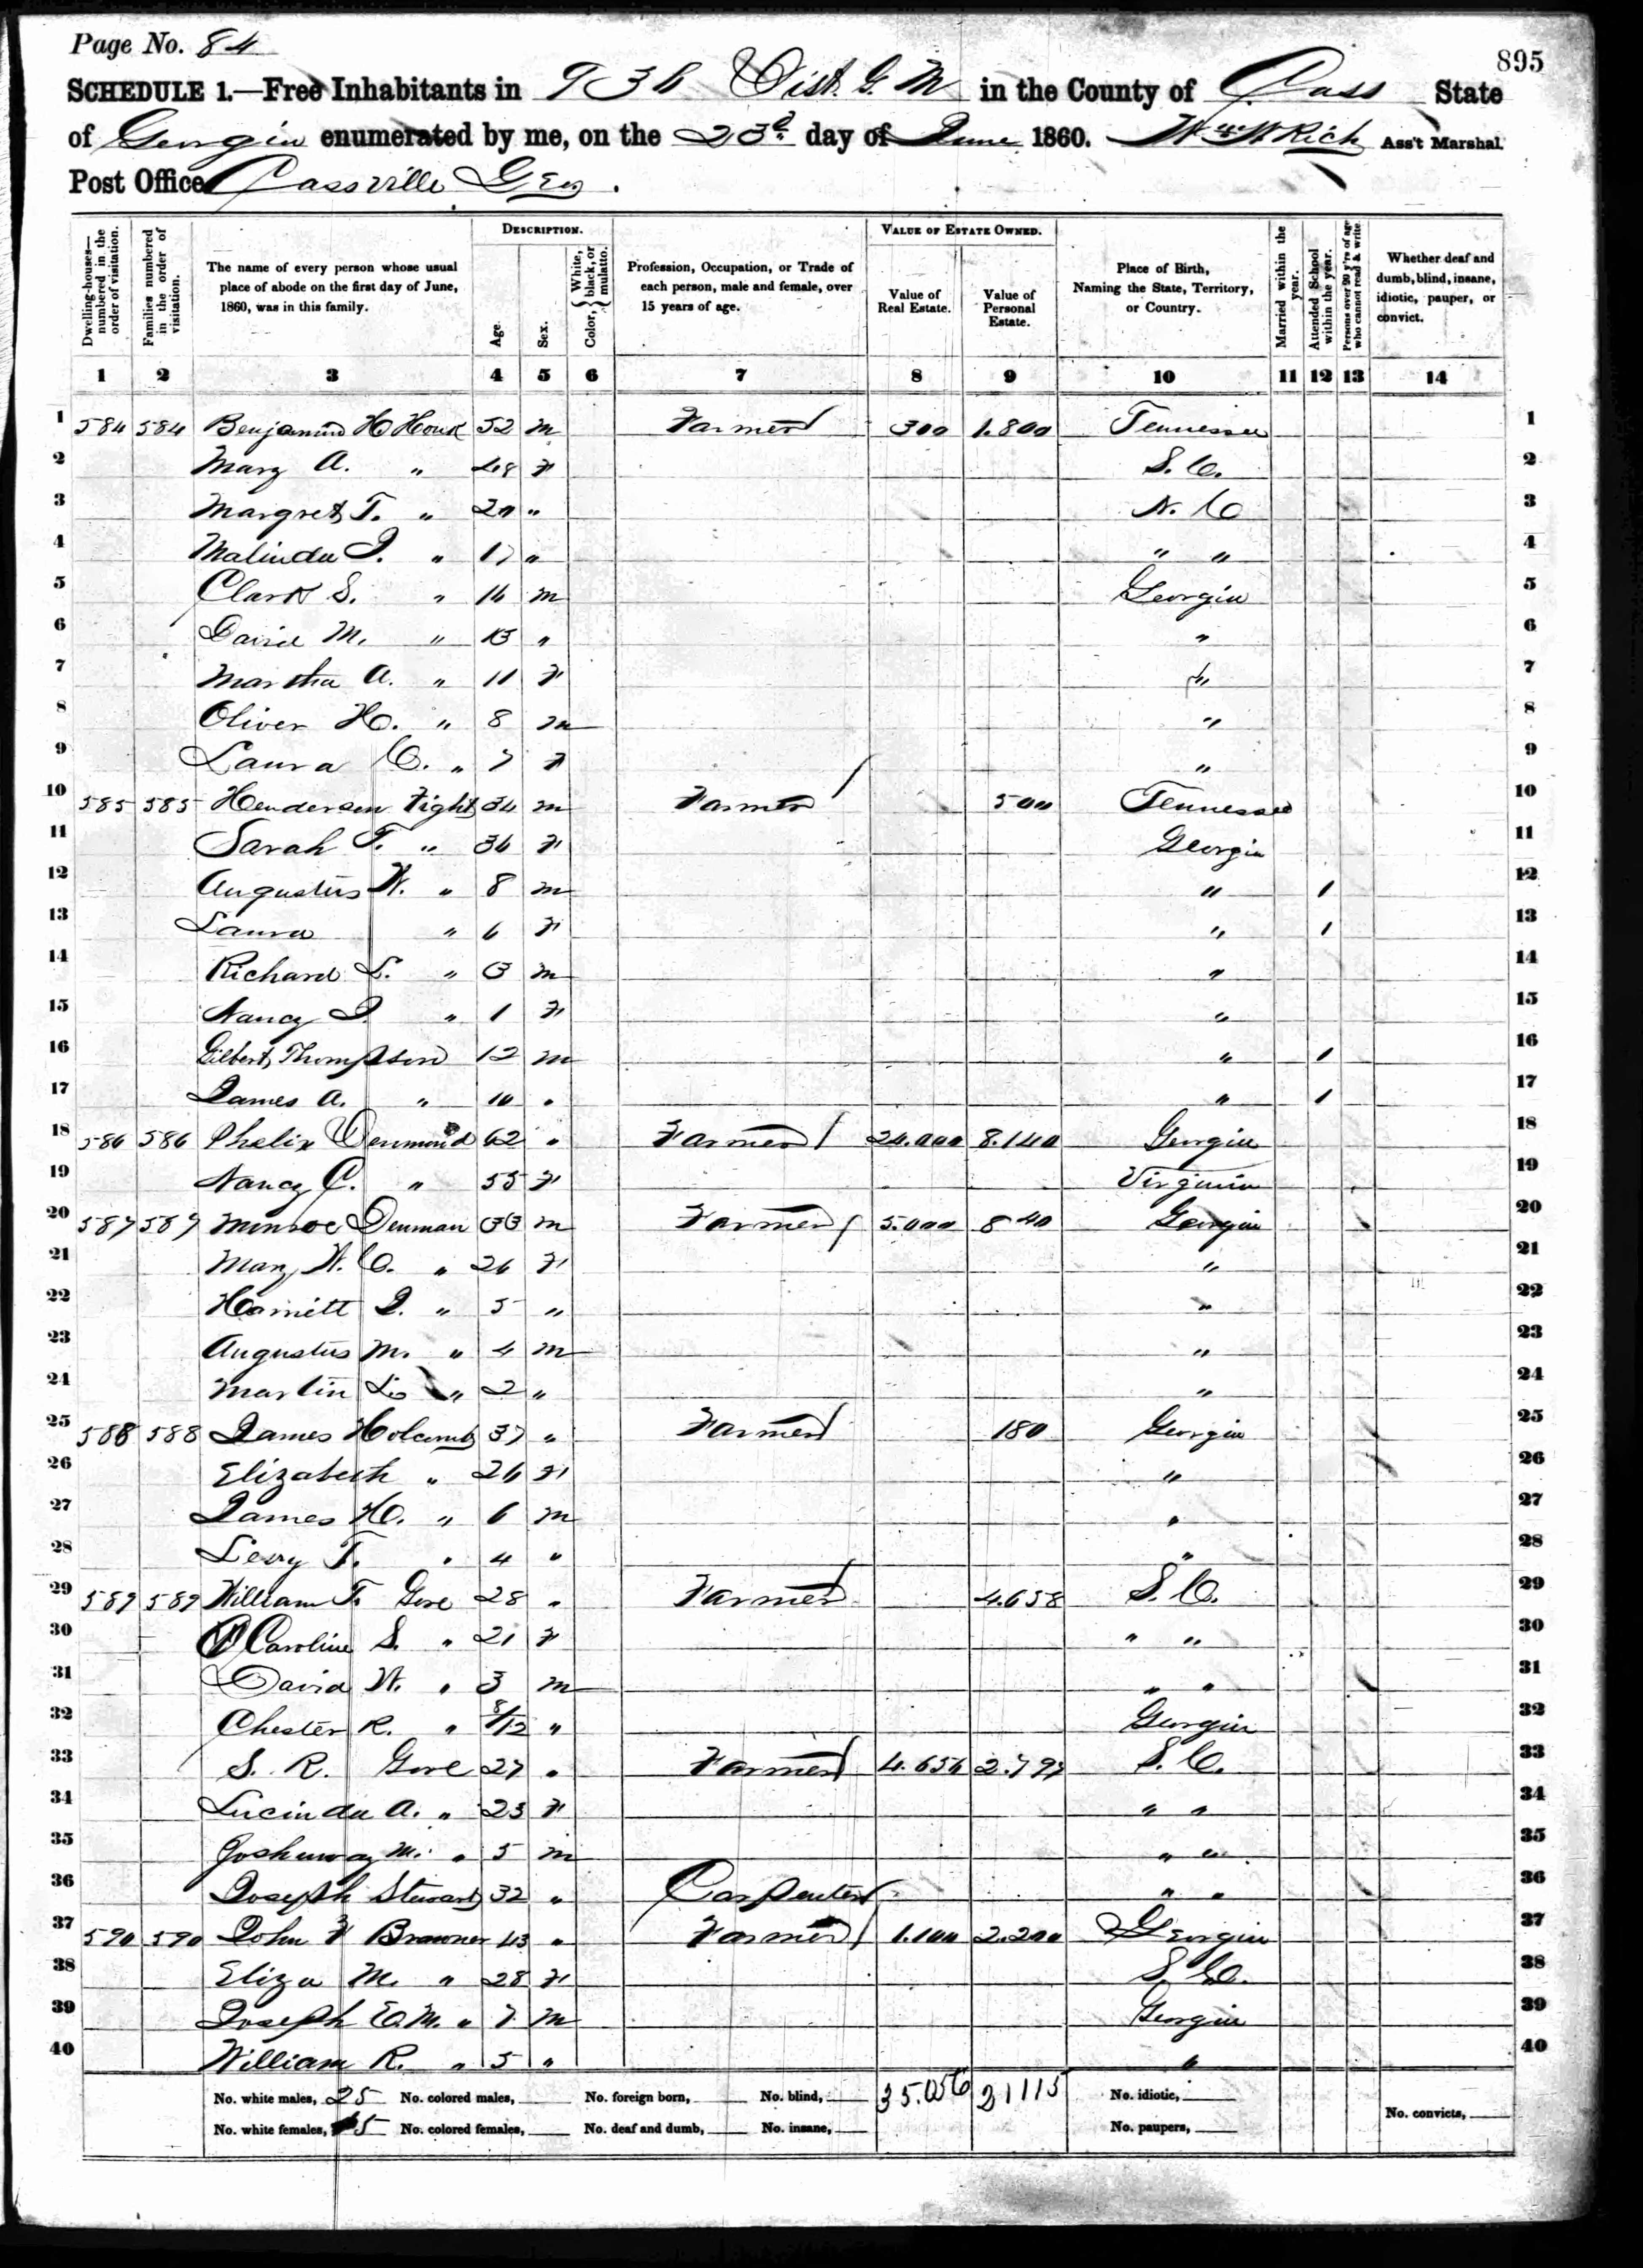 Page No. 84
895
SCHEDULE 1.—Free Inhabitants in 936 Dist. G. M in the County of Cass State
of Georgia enumerated by me, on the 23d day of June 1860. Wm W Rich Ass't Marshal.
Post Office Cassville Geo.
Dwelling-houses—numbered in the order of visitation. Families numbered in the order of visitation. The name of every person whose usual place of abode on the first day of June, 1860, was in this family. DESCRIPTION. Age. Sex. Color, { White, black, or mulatto. Profession, Occupation, or Trade of each person, male and female, over 15 years of age. VALUE OF ESTATE OWNED. Value of Real Estate. Value of Personal Estate. Place of Birth, Naming the State, Territory, or Country. Married within the year. Attended School within the year. Persons over 20 y'rs of age who cannot read & write. Whether deaf and dumb, blind, insane, idiotic, pauper, or convict.
1 2 3 4 5 6 7 8 9 10 11 12 13 14
1 584 584 Benjamin H Houk 52 m Farmer 300 1.800 Tennessee 1
2 Mary A. " 48 F S. C. 2
3 Margret T. " 20 " N. C 3
4 Malinda J. " 17 " " " 4
5 Clark S. " 16 m Georgia 5
6 David M. " 13 " " 6
7 Martha A. " 11 F " 7
8 Oliver H. " 8 m " 8
9 Laura C. " 7 F " 9
10 585 585 Henderson Fight 34 m Farmer 500 Tennessee 10
11 Sarah T. " 36 F Georgia 11
12 Augustus W. " 8 m " / 12
13 Laura " 6 F " / 13
14 Richard L. " 3 m " 14
15 Nancy J " 1 F " 15
16 Gilbert Thompson 12 m " / 16
17 James A. " 10 " " / 17
18 586 586 Phelix Denmond 62 " Farmer 24.000 8.140 Georgia 18
19 Nancy C. " 55 F Virginia 19
20 587 587 Monroe Denman 33 m Farmer 5.000 840 Georgia 20
21 Mary W. C. " 26 F " 21
22 Harriett J. " 5 " " 22
23 Augustus M. " 4 m " 23
24 Martin L. " 2 " " 24
25 588 588 James Holcomb 37 " Farmer 180 Georgia 25
26 Elizabeth " 26 F " 26
27 James H. " 6 m " 27
28 Levy T. " 4 " " 28
29 589 589 William T. Gore 28 " Farmer 4.658 S. C. 29
30 Caroline S. " 21 F " " 30
31 David W. " 3 m " " 31
32 Chester R. " 8/12 " Georgia 32
33 S. R. Gore 27 " Farmer 4.656 2.797 S. C. 33
34 Lucinda A. " 23 F " " 34
35 Joshuway M. " 5 m " " 35
36 Joseph Steward 32 " Carpenter " " 36
37 590 590 John F Brawner 43 " Farmer 1.100 2.200 Georgia 37
38 Eliza M. " 28 F S. C. 38
39 Joseph E. M. " 7 M Georgia 39
40 William R. " 5 " " 40
No. white males, 25 No. colored males, No. foreign born, No. blind, 35.056 21115 No. idiotic,
No. white females, 15 No. colored females, No. deaf and dumb, No. insane, No. paupers, No. convicts,